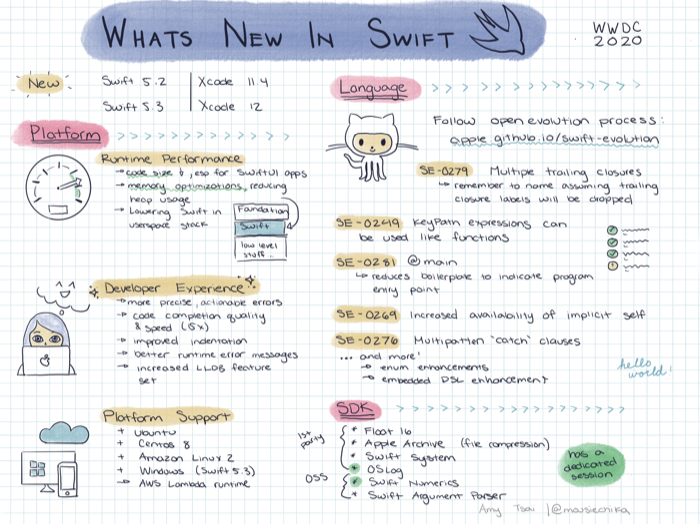 WHATS NEW IN SWIFT
WWDC
2020
New
Swift 5.2 | Xcode 11.4
Swift 5.3 | Xcode 12
Platform
Runtime Performance
→ code size ↓, esp for SwiftUI apps
→ memory optimizations, reducing
heap usage
→ Lowering Swift in
userspace stack
Foundation
Swift
low level
stuff...
Developer Experience
→ more precise, actionable errors
→ code completion quality
& speed (15x)
→ improved indentation
→ better runtime error messages
→ increased LLDB feature
set
Platform Support
+ Ubuntu
+ Centos 8
+ Amazon Linux 2
+ Windows (Swift 5.3)
→ AWS Lambda runtime
Language
Follow open evolution process:
apple.github.io/swift-evolution
SE-0279 Multiple trailing closures
↳ remember to name assuming trailing
closure labels will be dropped
SE-0249 KeyPath expressions can
be used like functions
SE-0281 @main
↳ reduces boilerplate to indicate program
entry point
SE-0269 Increased availability of implicit self
SE-0276 Multipattern "catch" clauses
... and more!
→ enum enhancements
→ embedded DSL enhancement
hello
world!
SDK
1st party
* Float 16
* Apple Archive (file compression)
* Swift System
* OSLog
OSS
* Swift Numerics
* Swift Argument Parser
has a
dedicated
session
Amy Tsai | @mausiechika